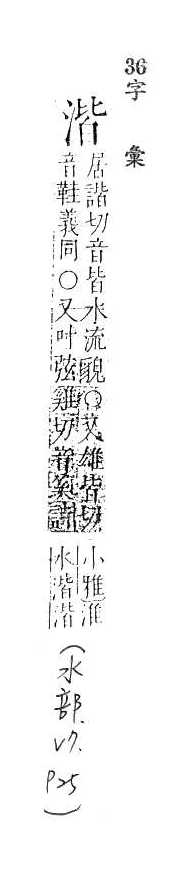 36字　彙
湝
居諧切音皆水流貌○又雄皆切
音鞋義同○又叶弦雞切音奚詩
小雅淮
水湝湝
(水部. V7. P25)